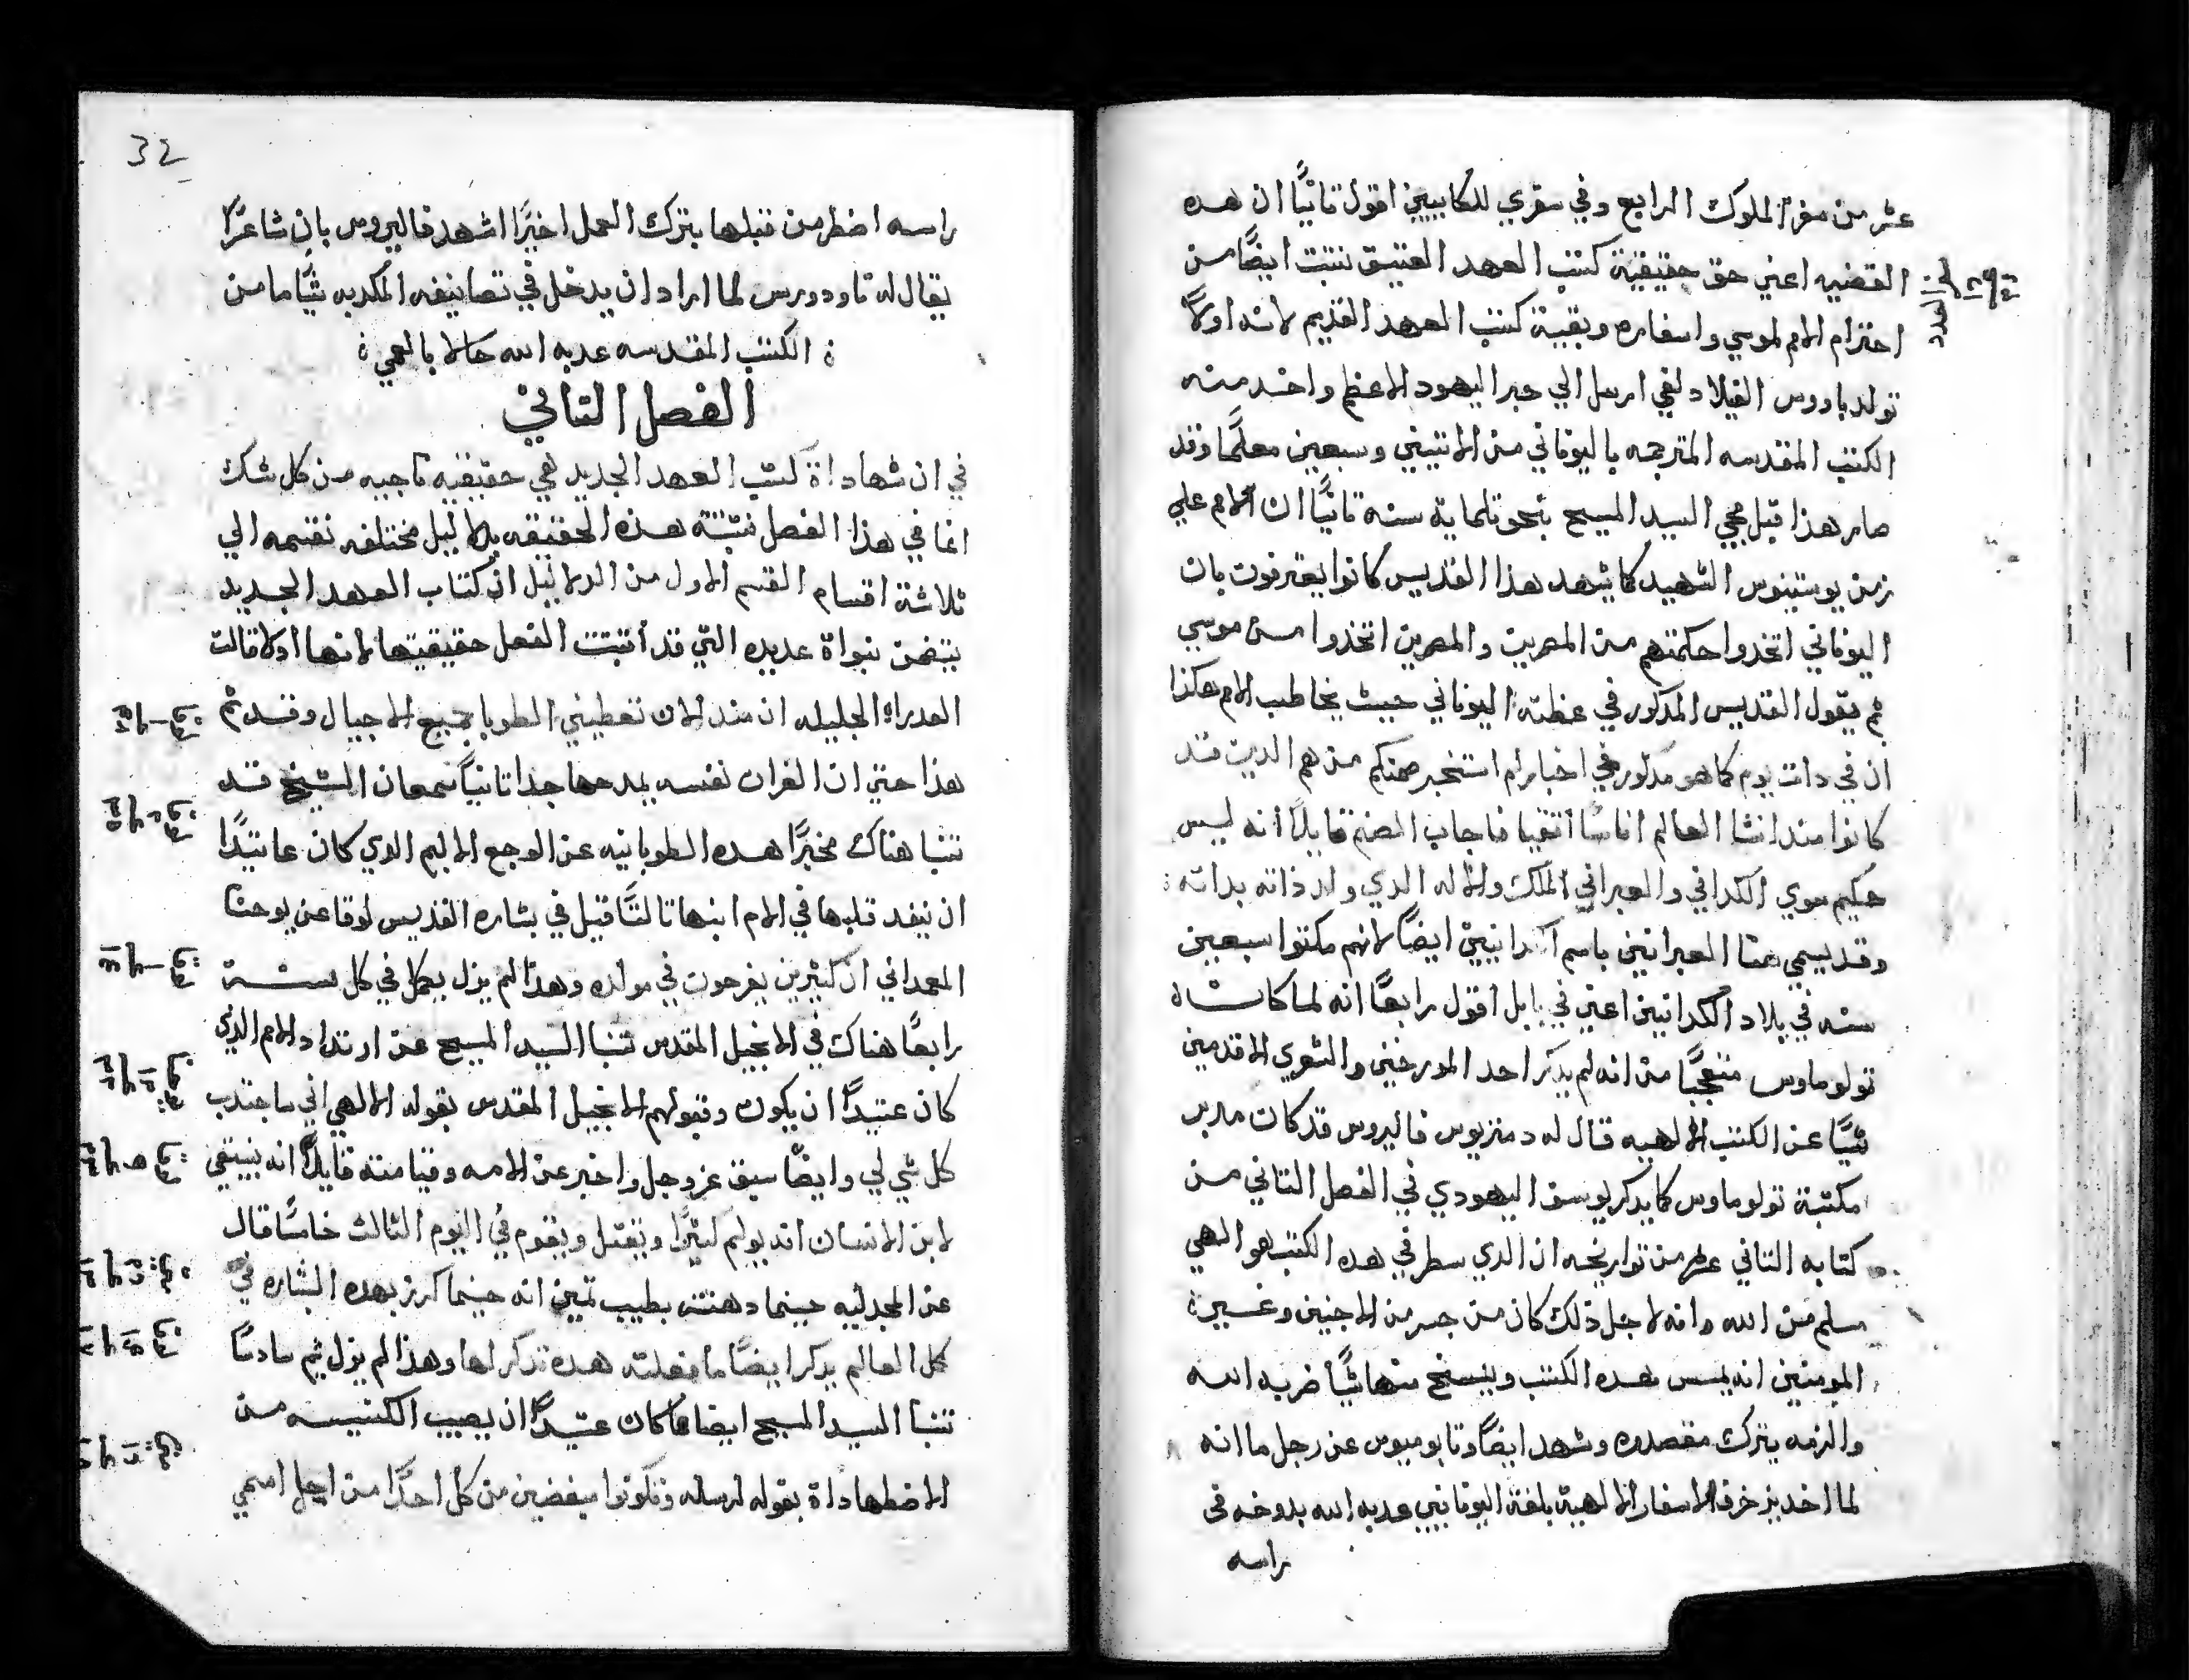 عشر من سفر الملوك الرابع وفي سفري للمكابيين اقول تانيًا ان هده
القضيه اعني حق حقيقية كتب العهد العتيق تتبت ايضًا من
احترام الامم لموسي واسفاره وبقية كتب العهد القديم لانه اولاً
تولد باووس الفيلادلفي ارسل الي حبر اليهود الاعظم واخد منه
الكتب المقدسه المترجمه باليوناني من الاتنيني وسبعين معلمًا وقد
صار هذا قبل مجي السيد المسيح بنحو تلماية سنة تانيًا ان الامم علي
زمن يوستينوس الشهيد كما يشهد هذا القديس كانوا يعترفون بان
اليوناني اتخدوا حكمتهم من المصريين والمصرين اتخذوا من موسي
ثم يقول القديس المدكور في عظته اليوناني حيث يخاطب الامم هكذا
ان في دات يوم كما هو مدكور في اخباركم استخبر صمنكم من هم الدين قد
كانوا مند انشا العالم اناسًا اتقيا فاجاب الصنم قايلاً انه ليس
حكيم سوي الكلداني والعبراني الملك والاله الدي ولد ذاته بداته
وقد يسمي هنا العبرانين باسم كدانيين ايضًا لانهم مكتوا سبعين
سنه في بلاد الكدانيين اعني في بابل اقول رابعًا انه لما كان شاه
تولوماوس متعجبًا من انه لم يدكر احد المورخين والشعري الاقدمين
شيًا عن الكتب الالهيه قال له دمتريوس فاليروس قد كان مدبر
مكتبة تولوماوس كما يدكر يوسف اليهودي في الفصل التاني من
كتابه التاني عشر من تواريخه ان الدي سطر في هده الكتب هو الهي
مسلم من الله وانه لاجل ذلك كان من جسر من الاجنبين وغير
المومنين انه يمس هده الكتب وينسخ منها شيًا ضربه الله
والزمه يترك مقصده وشهد ايضًا وتابومبوس عن رجل ما انه
لما اخد يزخرف الاسفار الالهية بلغة اليونانيين عدبه الله بدوخه في
راسه
32
راسه اضطر من قبلها بترك العمل اخيرًا اشهد فاليروس بان شاعرًا
يقال له تاودورس لما اراد ان يدخل في تصانيفه المكدبه شيًا ما من
الكتب المقدسه عدبه الله حالا بالعمي
الفصل التاني
في ان شهاداة كتب العهد الجديد هي حقيقيه ناجيه من كل شك
انما في هذا الفصل نتبتة هذه الحقيقه بدلاليل مختلفه نقسمه الي
ثلاثة اقسام القسم الاول من الدلاليل ان كتاب العهد الجديد
يتضمن نبواة عديده التي قد اتبتت الفعل حقيقيتها لانها اولا قالت
العدراء الجليله ان مند الان تعطيني الطوبا جميع الاجيال وقد تم
هذا حتي ان القران نفسه يمدحها جدا تانيًا سمعان الشيخ قد
تنبا هناك مخبرًا هده الطوبانيه عن الوجع الاليم الدي كان عاتيدًا
ان ينفد قلبها في الام ابنها تالتًا قيل في بشاره القديس لوقا عن يوحنا
المعمداني ان كثيرين يفرحون في مولده وهذا لم يزل يكمل في كل سنة
رابعًا هناك في الانجيل المقدس تنبا السيد المسيح عن ارتداد الامم الدي
كان عتيدًا ان يكون وقبولهم الانجيل المقدس بقوله الالهي اني ساجتدب
كل شي لي وايضًا سبق عز وجل واخبر عن الامه وقيامته قايلاً انه ينبغي
لابن الانسان انه يولم كثيرًا ويقتل ويقوم في اليوم الثالث خامسًا قال
عن المجدليه حينما دهنته بطيب تمين انه حينما كرز بهده البشاره في
كل العالم يدكر ايضًا ما فعلته هده تدكرا لها وهذا لم يزل ثم سادسًا
تنبا السيد المسيح ايضا عما كان عتيدًا ان يصيب الكنيسه من
الاضطهاداة بقوله لرسله وتكونوا مبغضين من كل احدًا من اجل اسمي